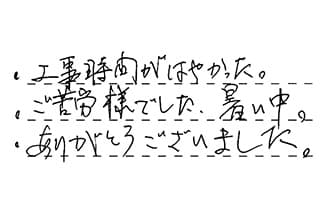 ・工事時間がはやかった。
・ご苦労様でした、暑い中。
・ありがとうございました。